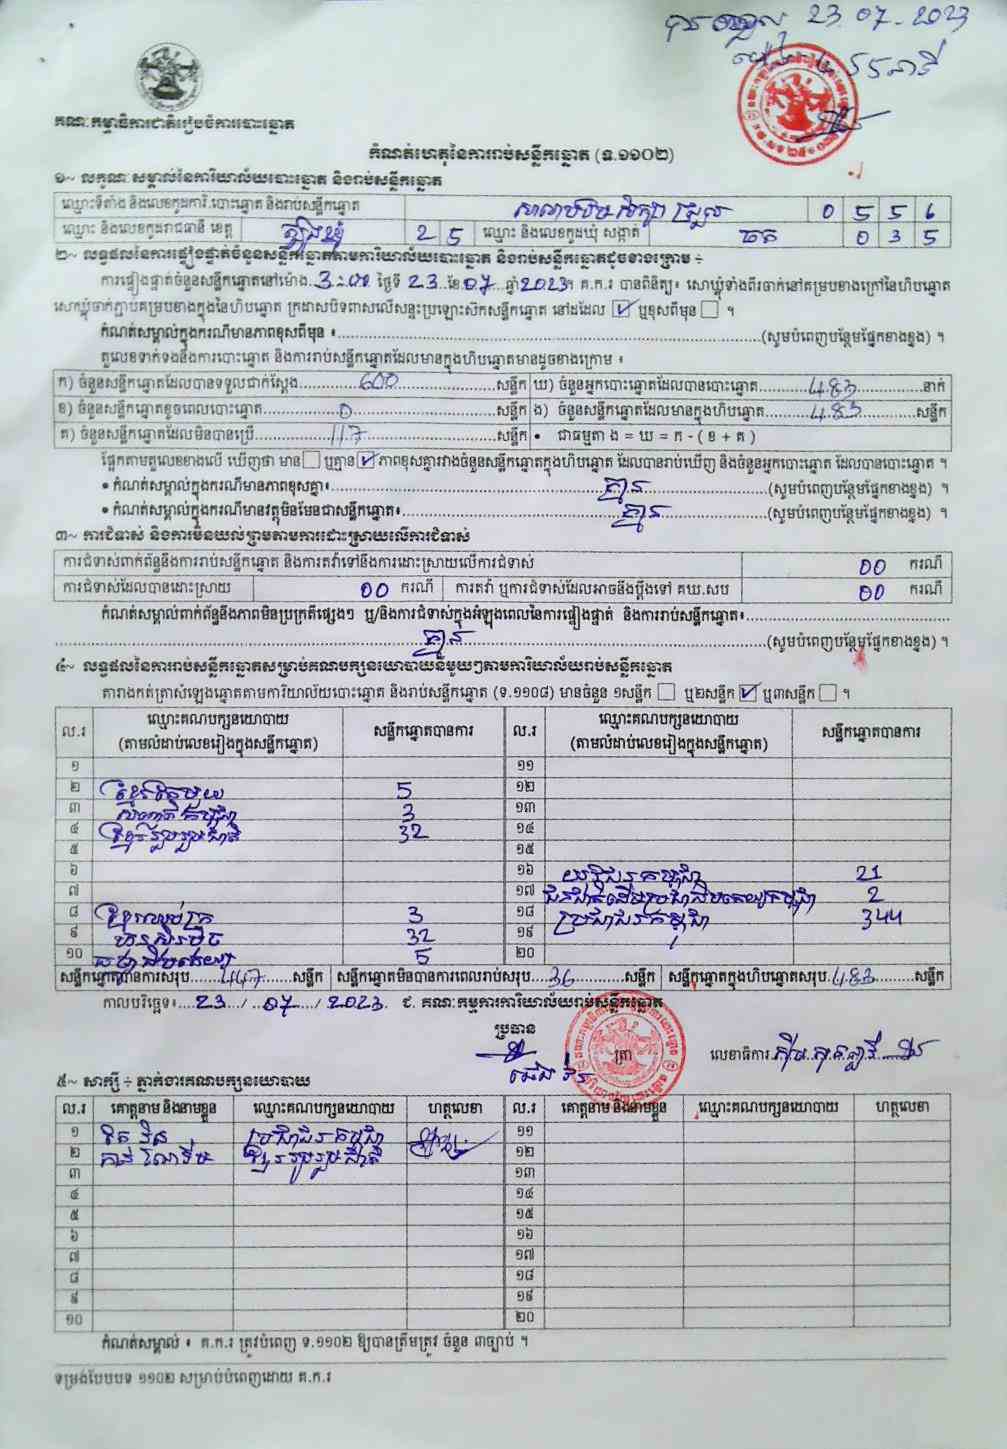 23.07.2023
គណៈកម្មាធិការជាតិរៀបចំការបោះឆ្នោត
កំណត់ហេតុនៃការរាប់សន្លឹកឆ្នោត (ទ.១១០២)
១~ លក្ខណៈសម្គាល់នៃការិយាល័យបោះឆ្នោត និងរាប់សន្លឹកឆ្នោត
ឈ្មោះទីតាំង និងលេខកូដការិ.បោះឆ្នោត និងរាប់សន្លឹកឆ្នោត 0 5 5 6
ឈ្មោះ និងលេខកូដរាជធានី ខេត្ត ត្បូងឃ្មុំ 2 5 ឈ្មោះ និងលេខកូដឃុំ សង្កាត់ 0 3 5
២~ លទ្ធផលនៃការផ្ទៀងផ្ទាត់ចំនួនសន្លឹកឆ្នោតតាមការិយាល័យបោះឆ្នោត និងរាប់សន្លឹកឆ្នោតដូចខាងក្រោម ÷
ការផ្ទៀងផ្ទាត់ចំនួនសន្លឹកឆ្នោតនៅម៉ោង 3:00 ថ្ងៃទី 23 ខែ 07 ឆ្នាំ 2023។ គ.ក.រ បានពិនិត្យ៖ សោឃ្លុំទាំងពីរចាក់នៅគម្របខាងក្រៅនៃហិបឆ្នោត
សោឃ្លុំចាក់ភ្ជាប់គម្របខាងក្នុងនៃហិបឆ្នោត ក្រដាសបិទពាសលើសន្ទះប្រឡោះសិកសន្លឹកឆ្នោត នៅដដែល ☑ ឬខុសពីមុន ☐ ។
កំណត់សម្គាល់ក្នុងករណីមានភាពខុសពីមុន ៖ (សូមបំពេញបន្ថែមផ្នែកខាងខ្នង) ។
តួលេខទាក់ទងនឹងការបោះឆ្នោត និងការរាប់សន្លឹកឆ្នោតដែលមានក្នុងហិបឆ្នោតមានដូចខាងក្រោម ៖
ក) ចំនួនសន្លឹកឆ្នោតដែលបានទទួលជាក់ស្តែង 600 សន្លឹក ឃ) ចំនួនអ្នកបោះឆ្នោតដែលបានបោះឆ្នោត 483 នាក់
ខ) ចំនួនសន្លឹកឆ្នោតខូចពេលបោះឆ្នោត 0 សន្លឹក ង) ចំនួនសន្លឹកឆ្នោតដែលមានក្នុងហិបឆ្នោត 483 សន្លឹក
គ) ចំនួនសន្លឹកឆ្នោតដែលមិនបានប្រើ 117 សន្លឹក • ជាធម្មតា ង = ឃ = ក - ( ខ + គ )
ផ្អែកតាមតួលេខខាងលើ ឃើញថា មាន ☐ ឬគ្មាន ☑ ភាពខុសគ្នារវាងចំនួនសន្លឹកឆ្នោតក្នុងហិបឆ្នោត ដែលបានរាប់ឃើញ និងចំនួនអ្នកបោះឆ្នោត ដែលបានបោះឆ្នោត ។
• កំណត់សម្គាល់ក្នុងករណីមានភាពខុសគ្នា៖ គ្មាន (សូមបំពេញបន្ថែមផ្នែកខាងខ្នង) ។
• កំណត់សម្គាល់ក្នុងករណីមានវត្ថុមិនមែនជាសន្លឹកឆ្នោត៖ គ្មាន (សូមបំពេញបន្ថែមផ្នែកខាងខ្នង) ។
៣~ ការជំទាស់ និងការមិនយល់ព្រមតាមការដោះស្រាយលើការជំទាស់
ការជំទាស់ពាក់ព័ន្ធនឹងការរាប់សន្លឹកឆ្នោត និងការតវ៉ាទៅនឹងការដោះស្រាយលើការជំទាស់ 00 ករណី
ការជំទាស់ដែលបានដោះស្រាយ 00 ករណី ការតវ៉ា ឬការជំទាស់ដែលអាចនឹងប្តឹងទៅ គឃ.សប 00 ករណី
កំណត់សម្គាល់ពាក់ព័ន្ធនឹងភាពមិនប្រក្រតីផ្សេងៗ ឬ/និងការជំទាស់ក្នុងអំឡុងពេលនៃការផ្ទៀងផ្ទាត់ និងការរាប់សន្លឹកឆ្នោត៖
គ្មាន (សូមបំពេញបន្ថែមផ្នែកខាងខ្នង) ។
៤~ លទ្ធផលនៃការរាប់សន្លឹកឆ្នោតសម្រាប់គណបក្សនយោបាយនីមួយៗតាមការិយាល័យរាប់សន្លឹកឆ្នោត
តារាងកត់ត្រាសំឡេងឆ្នោតតាមការិយាល័យបោះឆ្នោត និងរាប់សន្លឹកឆ្នោត (ទ.១១០៨) មានចំនួន ១សន្លឹក ☐ ឬ២សន្លឹក ☑ ឬ៣សន្លឹក ☐ ។
ល.រ ឈ្មោះគណបក្សនយោបាយ (តាមលំដាប់លេខរៀងក្នុងសន្លឹកឆ្នោត) សន្លឹកឆ្នោតបានការ ល.រ ឈ្មោះគណបក្សនយោបាយ (តាមលំដាប់លេខរៀងក្នុងសន្លឹកឆ្នោត) សន្លឹកឆ្នោតបានការ
១ ១១
២ ខ្មែរតែមួយ 5 ១២
៣ 3 ១៣
៤ ខ្មែររួបរួមជាតិ 32 ១៤
៥ ១៥
៦ ១៦ យុវជនកម្ពុជា 21
៧ ១៧ 2
៨ 3 ១៨ ប្រជាជនកម្ពុជា 344
៩ ហ៊្វុនស៊ិនប៉ិច 32 ១៩
១០ 5 ២០
សន្លឹកឆ្នោតបានការសរុប 447 សន្លឹក សន្លឹកឆ្នោតមិនបានការពេលរាប់សរុប 36 សន្លឹក សន្លឹកឆ្នោតក្នុងហិបឆ្នោតសរុប 483 សន្លឹក
កាលបរិច្ឆេទ៖ 23 / 07 / 2023 ៩. គណៈកម្មការការិយាល័យរាប់សន្លឹកឆ្នោត
ប្រធាន
ត្រា លេខាធិការ
៥~ សាក្សី ÷ ភ្នាក់ងារគណបក្សនយោបាយ
ល.រ គោត្តនាម និងនាមខ្លួន ឈ្មោះគណបក្សនយោបាយ ហត្ថលេខា ល.រ គោត្តនាម និងនាមខ្លួន ឈ្មោះគណបក្សនយោបាយ ហត្ថលេខា
១ ប្រជាជនកម្ពុជា ១១
២ ខ្មែររួបរួមជាតិ ១២
៣ ១៣
៤ ១៤
៥ ១៥
៦ ១៦
៧ ១៧
៨ ១៨
៩ ១៩
១០ ២០
កំណត់សម្គាល់ ៖ គ.ក.រ ត្រូវបំពេញ ទ.១១០២ ឱ្យបានត្រឹមត្រូវ ចំនួន ៣ច្បាប់ ។
ទម្រង់បែបបទ ១១០២ សម្រាប់បំពេញដោយ គ.ក.រ